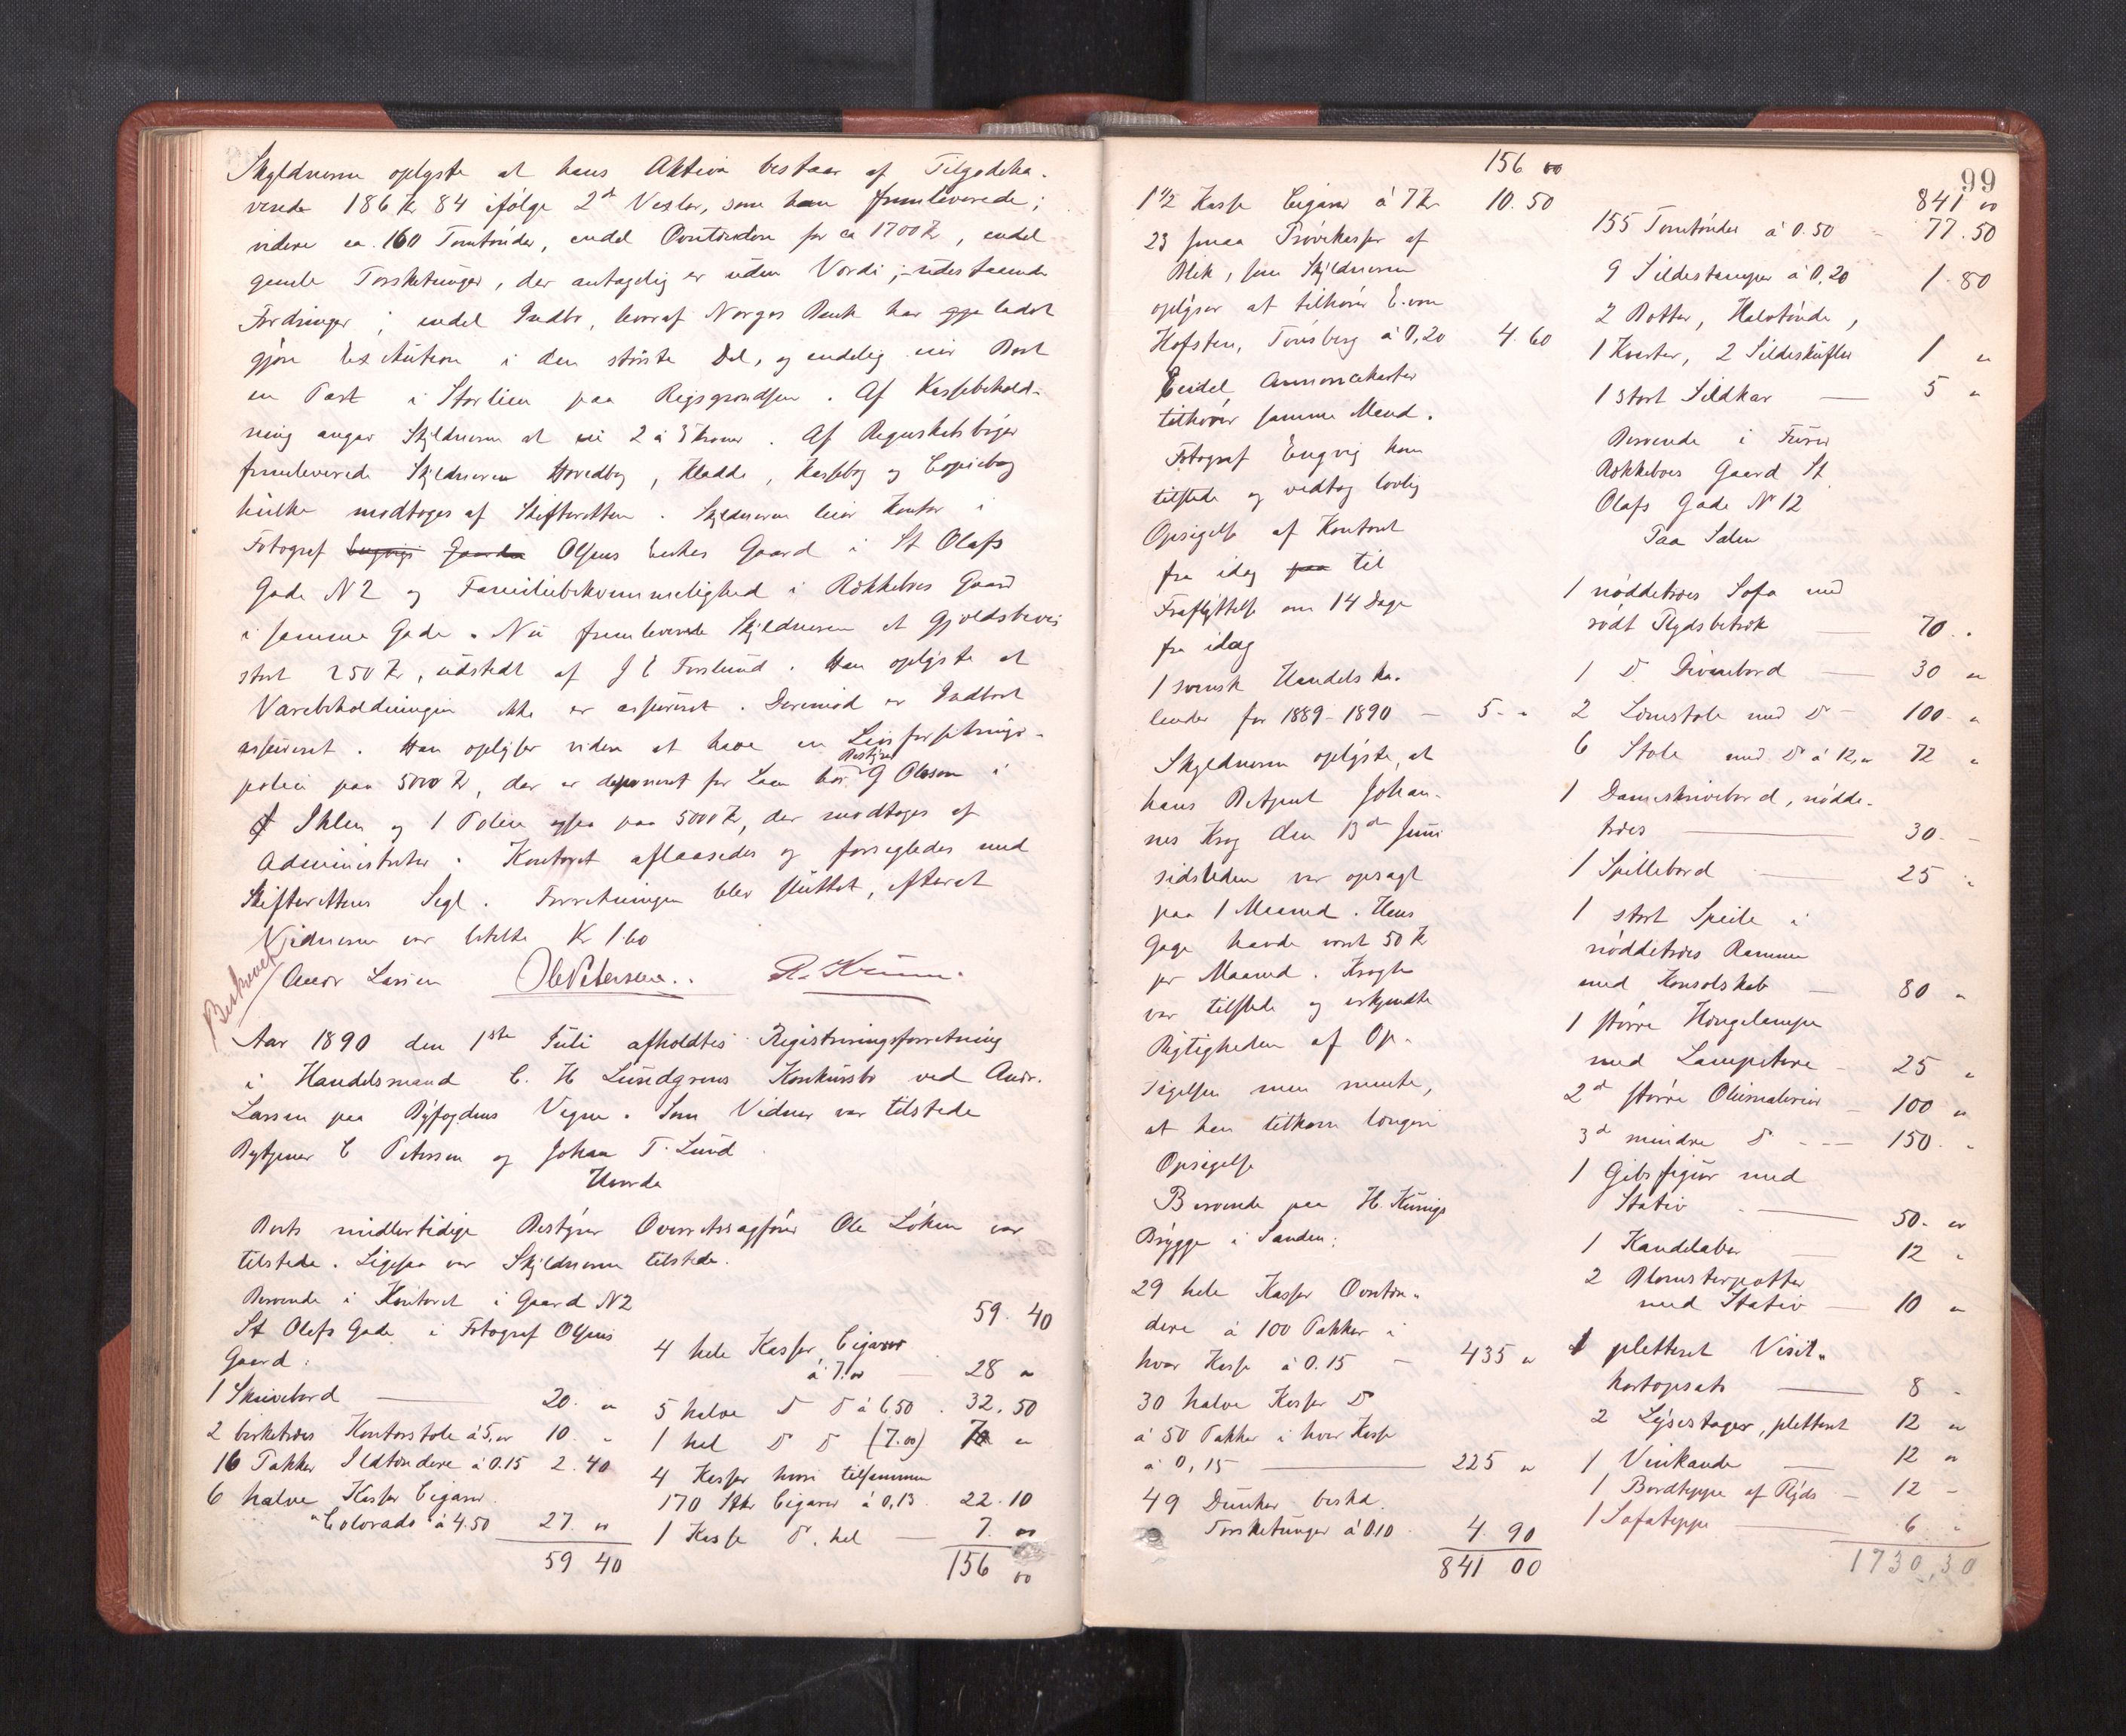 Skyldneren oplyste at hans Aktiva bestaar af Tilgodeha-
vende 186 Kr 84 ifølge 2de Vexler, som han fremleverede;
videre ca. 160 Tomtønder, endel Ovntændere for ca 1700 Kr, endel
gamle Torsketunger, der antagelig er uden Værdi; udestaaende
Fordringer; endel Indbo, hvoraf Norges Bank har ladet
gjøre Exekution i den største Del, og endelig eier Boet
en Part i Storlien paa Rigsgrændsen. Af Kassebehold-
ning angav Skyldneren at eie 2 à 3 kroner. Af Regnskabsbøger
fremleverede Skyldneren Hovedbog, Kladde, Kassebog og Copiebog
hvilke modtoges af Skifteretten. Skyldneren leier Kontor i
Fotograf Engvigs Gaarden Olsens Enkes Gaard i St Olafs
Gade N 2 og Familiebekvemmelighed i Rökkeboes Gaard
i samme Gade. Nu fremleverede Skyldneren et Gjældsbevis
stort 250 Kr, udstedt af J E Forslund. Han oplyste at
Varebeholdningen ikke er assureret. Derimod er Indboet
assureret. Han oplyser videre at have en Livsforsikrings-
police paa 5000 Kr, der er deponeret for Laan hos Bestyrer G Olsson i
Ihlen og 1 Police ogsaa paa 5000 Kr, der modtoges af
Administrator. Kontoret aflaasedes og forsegledes med
Skifterettens Segl. Forretningen blev sluttet, efterat
Vidnerne var betalte Kr 1.60
Beskrevet
Andr Larsen Ole Petersen.. R. Krumm.
Aar 1890 den 1ste Juli afholdtes Registreringsforretning
i Handelsmand C. H. Lundgrens Konkursbo ved Andr.
Larsen paa Byfogdens Vegne. Som Vidner var tilstede
Bytjener C Petersen og Johan T. Lund
Hvorda
Boets midlertidige Bestyrer Overretssagfører Ole Löken var
tilstede. Ligesaa var Skyldneren tilstede.
Beroende i Kontoret i Gaard N2
St Olafs Gade i Fotograf Olsens
Gaard:
1 Skrivebord — 20. "
2 birketræes Kontorstole à 5,00 10. "
16 Pakker Ildtændere à 0.15 2.40
6 halve Kasser Cigarer
"Colorado à 4.50 27. 00
59 40
59. 40
4 hele Kasser Cigarer
à 7.00 — 28 "
5 halve D D à 6.50 . 32.50
1 hel D D (7.00) 7 "
4 Kasser hvori tilsammen
170 Stkr Cigarer à 0,13. 22.10
1 Kasse D. hel — 7. 00
156 00
99
156 00
1 1/2 Kasse Cigarer à 7 Kr 10.50
23 smaa Prøvekasser af
Blik, som Skyldneren
oplyser at tilhøre E. von
Hofsten, Tønsberg à 0,20 4.60
Endel Annoncekarter
tilhører samme Mand.
Fotograf Engvig kom
tilstede og vedtog lovlig
Opsigelse af Kontoret
fra idag paa til
Fraflyttelse om 14 Dage
fra idag
1 svensk Handelska-
lender for 1889-1890 — 5. "
Skyldneren oplyste, at
hans Betjent Johan-
nes Krog den 13de Juni
sidstleden var opsagt
paa 1 Maaned. Hans
Gage havde været 50 Kr
pr Maaned. Krogh
var tilstede og erkjendte
Rigtigheden af Op-
sigelsen men mente,
at han tilkom længere
Opsigelse
Beroende paa H. Kunigs
Brygge i Sanden:
29 hele Kasser Ovntæn-
dere à 100 Pakker i
hver Kasse à 0.15 — 435 "
30 halve Kasser D
à 50 Pakker i hver Kasse
à 0,15 — 225 "
49 Dunker beska.
Torsketunger à 0.10 4. 90
841 00
841 00
155 Tomtønder à 0.50 - 77.50
9 Sildestamper à 0,20 1.80
2 Botter, Halvtønde,
1 Kvarter, 2 Sildeskufler 1 "
1 stort Sildkar — 5 "
Beroende i Fuirer
Rökkeboes Gaard St
Olafs Gade N 12
Paa Salen
1 nøddetræes Sofa med
rødt Plydsbetræk — 70. "
1 D Divanbord — 30 "
2 Lænestole med D - 100 "
6 Stole med D à 12,00 72 "
1 Dameskrivebord, nødde-
træes — 30. -
1 Spillebord — 25 "
1 stort Speile i
nøddetræes Ramme
med Konsolskab — 80 "
1 større Hængelampe
med Lampetere - 25 "
2de større Oliemalerier - 100 "
3de mindre D --- 150. "
1 Gibsfigur med
Stativ — 50. "
1 Kandelaber — 12 "
2 Blomsterpotter
med Stativ — 10 "
1 pletteret Visit-
kortopsats — 8 -
2 Lysestager, pletteret 12 "
1 Vinkande — 12 "
1 Bordteppe af Plyds - 12 -
1 Sofateppe — 6 "
1730,30